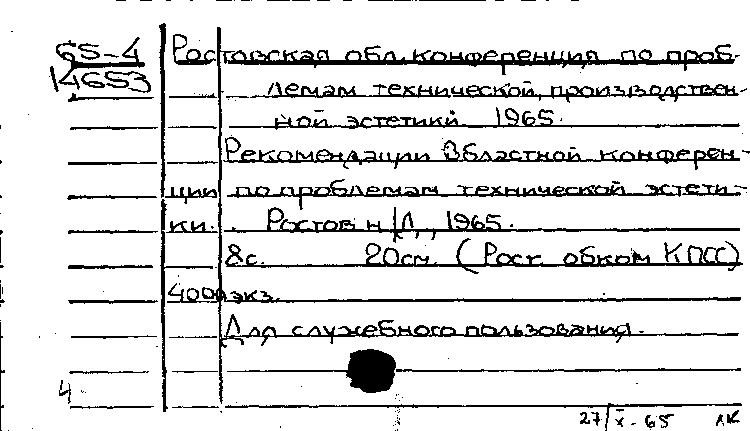 65-4
14653
Ростовская обл. конференция по проб-
лемам технической, производствен-
ной эстетики. 1965.
Рекомендации Областной конферен-
ции по проблемам технической эстети-
ки. Ростов н/Д, 1965.
8с. 20см. (Рост. обком КПСС)
4000 экз.
Для служебного пользования.
4
27/X-65 ЛК